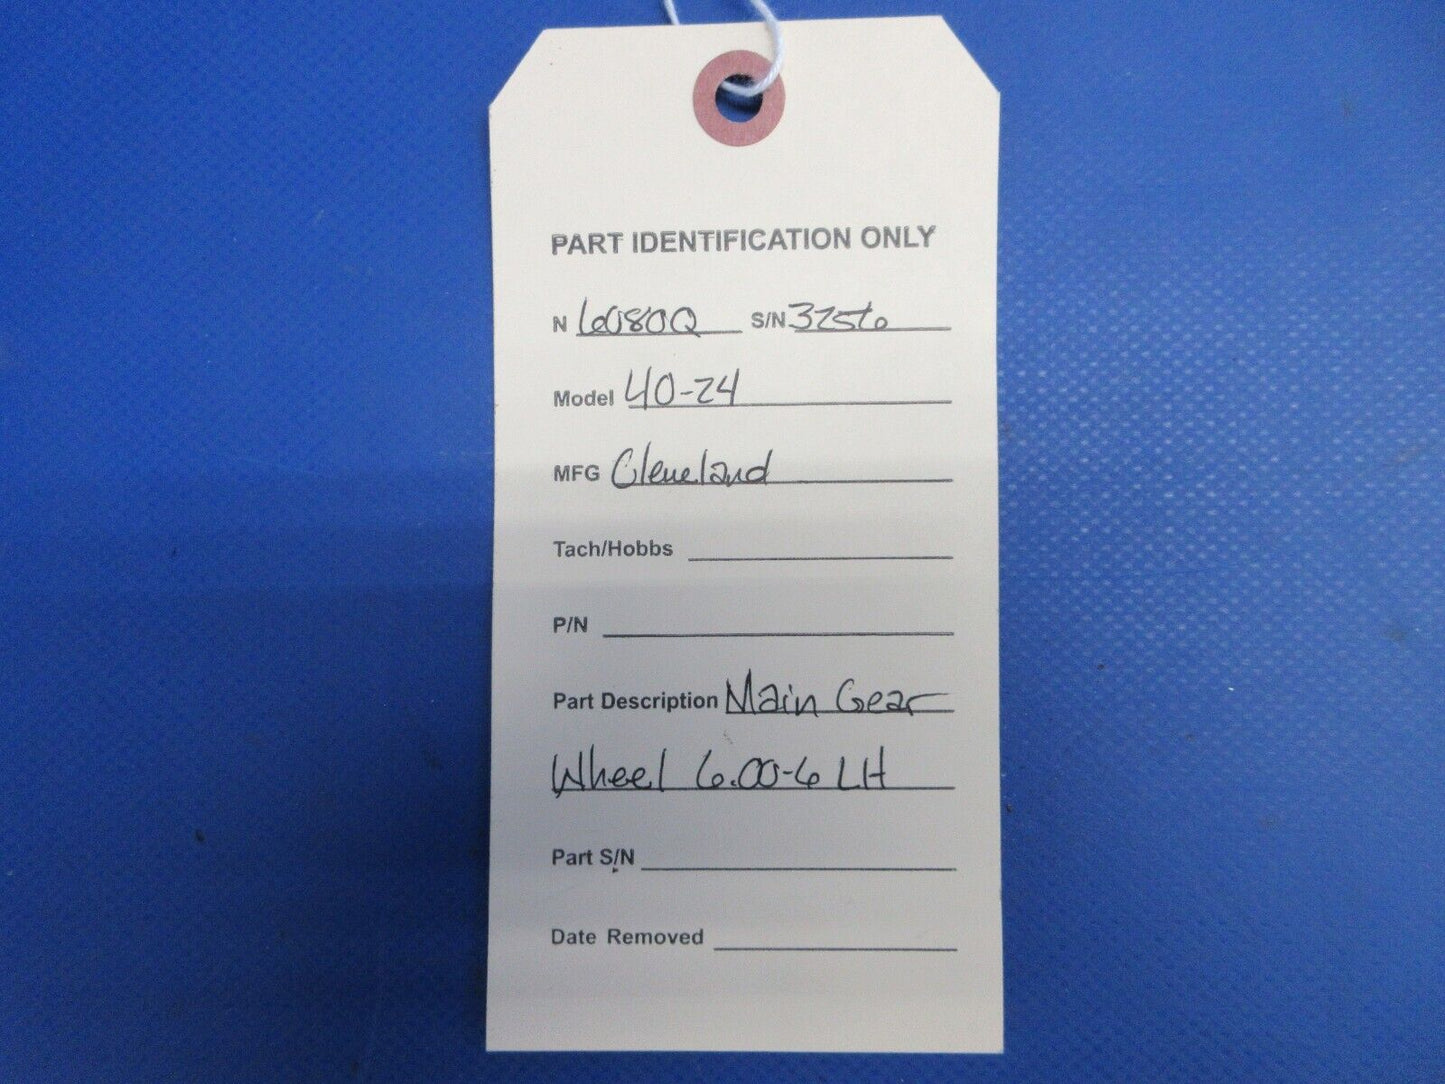 PART IDENTIFICATION ONLY
N 6080Q S/N 3256
Model 40-24
MFG Cleveland
Tach/Hobbs
P/N
Part Description Main Gear
Wheel 6.00-6 LH
Part S/N
Date Removed